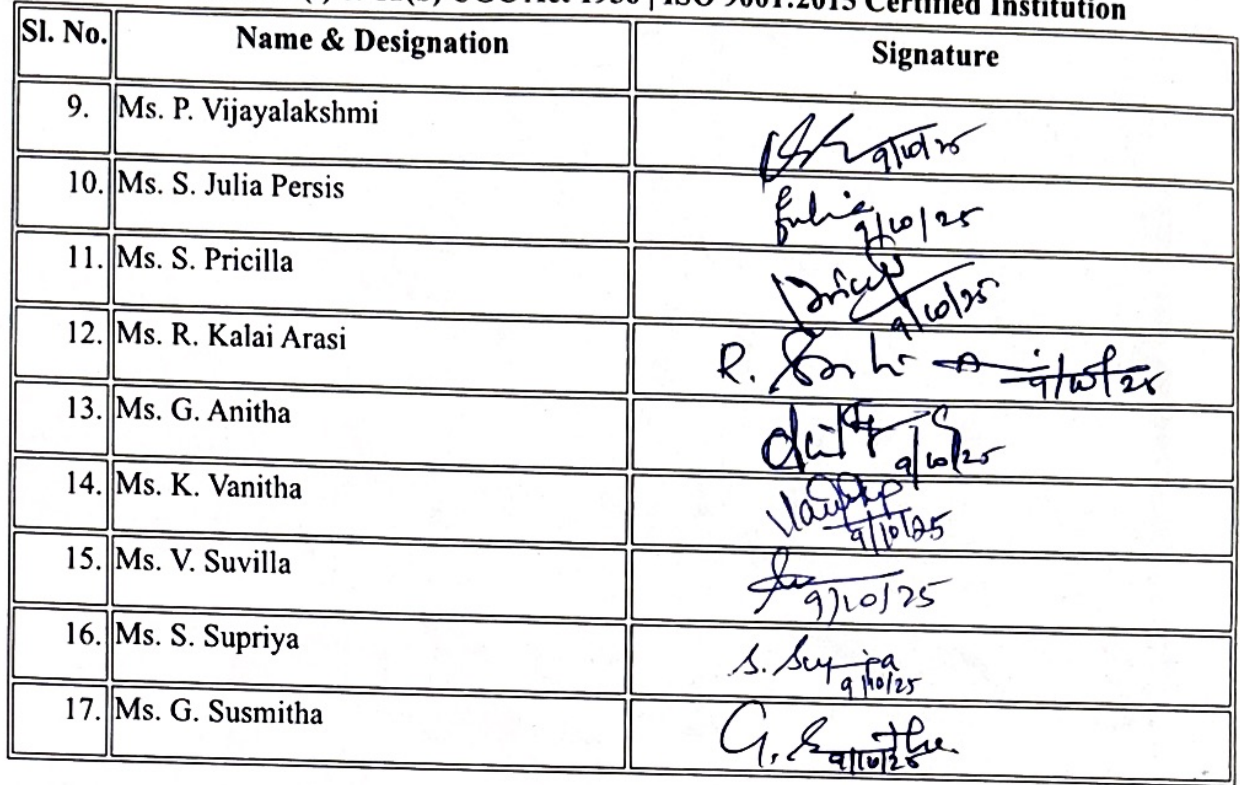 Certified Institution
Sl. No. Name & Designation Signature
9. Ms. P. Vijayalakshmi 9/10/25
10. Ms. S. Julia Persis Julia 9/10/25
11. Ms. S. Pricilla 9/10/25
12. Ms. R. Kalai Arasi R. 9/10/25
13. Ms. G. Anitha 9/10/25
14. Ms. K. Vanitha 9/10/25
15. Ms. V. Suvilla 9/10/25
16. Ms. S. Supriya S. 9/10/25
17. Ms. G. Susmitha G. 9/10/25